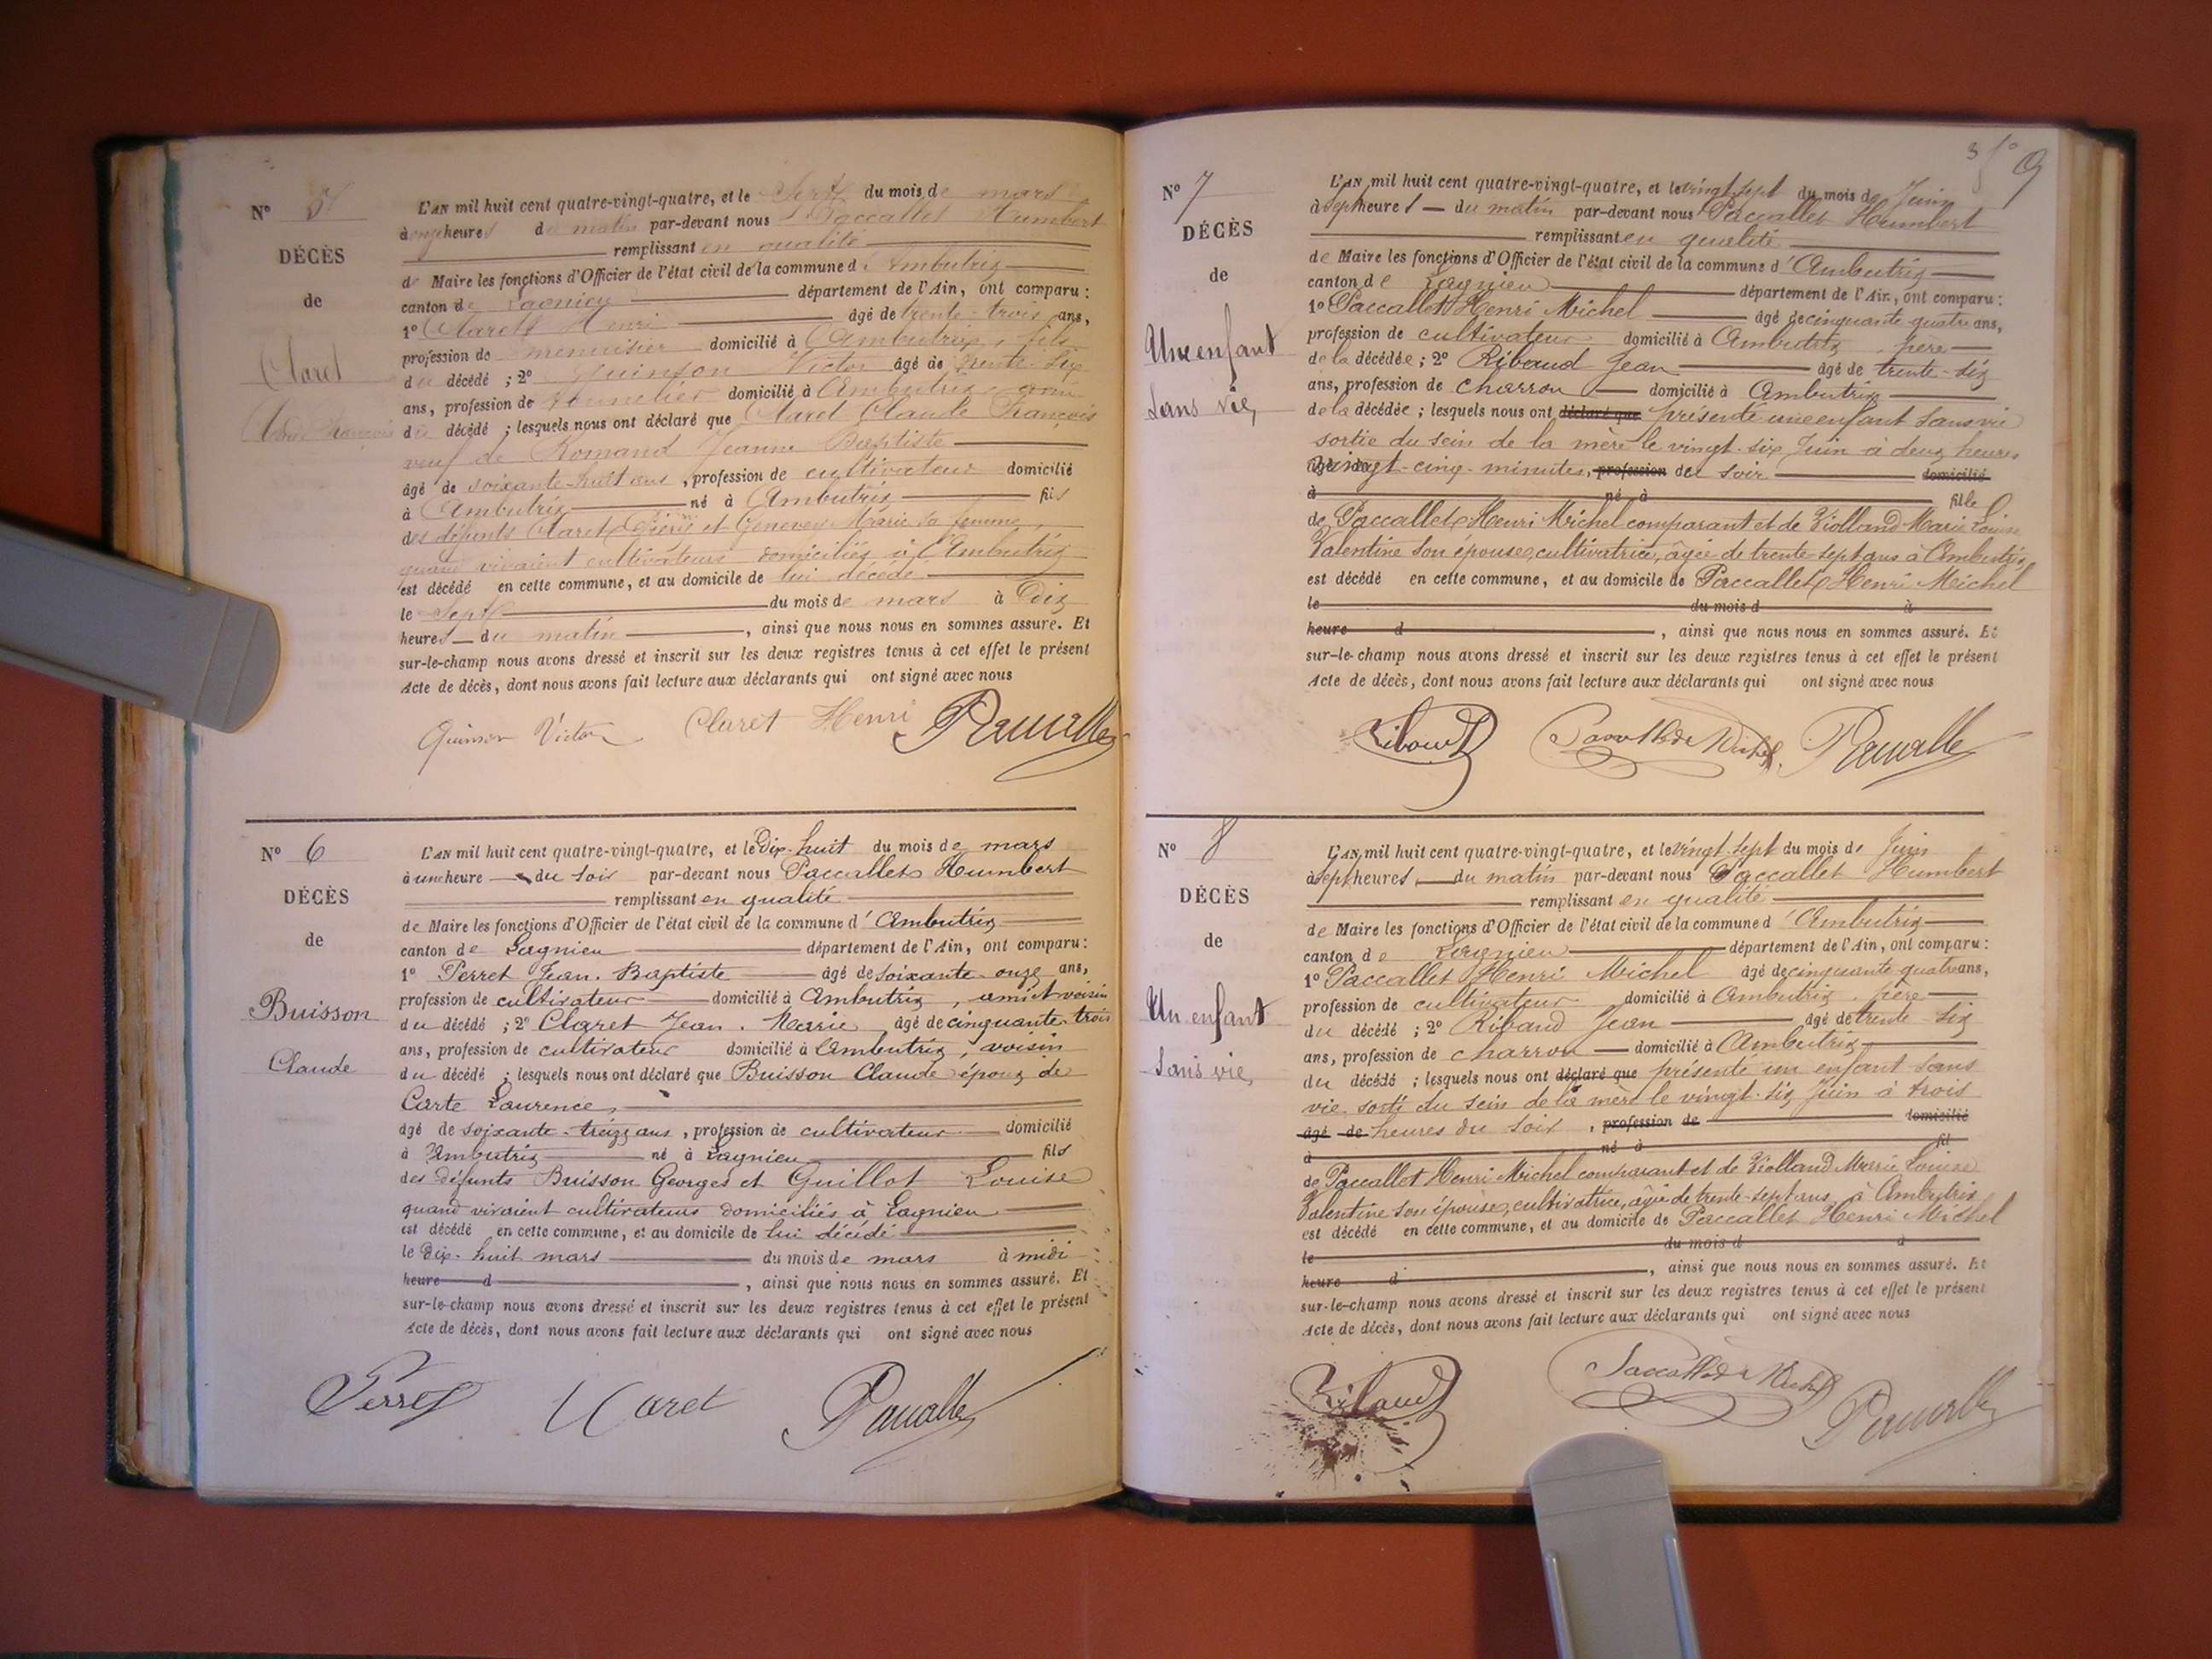 N° 5
DÉCÈS
de
Claret
Claude François
L'AN mil huit cent quatre-vingt-quatre, et le Sept du mois de mars
à onze heures du matin par-devant nous Paccallet Humbert
remplissant en qualité
de Maire les fonctions d'Officier de l'état civil de la commune d'Ambutrix
canton de Lagnieu département de l'Ain, ont comparu :
1° Claret Henri âgé de trente-trois ans,
profession de menuisier domicilié à Ambutrix, fils
du décédé ; 2° Quinson Victor âgé de trente-six
ans, profession de tonnelier domicilié à Ambutrix
du décédé ; lesquels nous ont déclaré que Claret Claude François
veuf de Romand Jeanne Baptiste
âgé de soixante-huit ans, profession de cultivateur domicilié
à Ambutrix né à Ambutrix fils
des défunts Claret Pierre et Genevey Marie sa femme,
quand vivaient cultivateurs domiciliés à Ambutrix
est décédé en cette commune, et au domicile de lui décédé
le Sept du mois de mars à Dix
heures du matin, ainsi que nous nous en sommes assuré. Et
sur-le-champ nous avons dressé et inscrit sur les deux registres tenus à cet effet le présent
Acte de décès, dont nous avons fait lecture aux déclarants qui ont signé avec nous
Quinson Victor Claret Henri Paccallet
N° 6
DÉCÈS
de
Buisson
Claude
L'AN mil huit cent quatre-vingt-quatre, et le Dix-huit du mois de mars
à une heure du soir par-devant nous Paccallet Humbert
remplissant en qualité
de Maire les fonctions d'Officier de l'état civil de la commune d'Ambutrix
canton de Lagnieu département de l'Ain, ont comparu :
1° Perret Jean-Baptiste âgé de soixante-onze ans,
profession de cultivateur domicilié à Ambutrix, ami et voisin
du décédé ; 2° Claret Jean-Marie âgé de cinquante-trois
ans, profession de cultivateur domicilié à Ambutrix, voisin
du décédé ; lesquels nous ont déclaré que Buisson Claude époux de
Carte Laurence,
âgé de soixante-treize ans, profession de cultivateur domicilié
à Ambutrix né à Lagnieu fils
des défunts Buisson Georges et Guillot Louise
quand vivaient cultivateurs domiciliés à Lagnieu
est décédé en cette commune, et au domicile de lui décédé
le Dix-huit mars du mois de mars à midi
heure d, ainsi que nous nous en sommes assuré. Et
sur-le-champ nous avons dressé et inscrit sur les deux registres tenus à cet effet le présent
Acte de décès, dont nous avons fait lecture aux déclarants qui ont signé avec nous
Perret Claret Paccallet
3 f° 9
N° 7
DÉCÈS
de
Une enfant
Sans vie,
L'AN mil huit cent quatre-vingt-quatre, et le vingt-sept du mois de Juin
à sept heures du matin par-devant nous Paccallet Humbert
remplissant en qualité
de Maire les fonctions d'Officier de l'état civil de la commune d'Ambutrix
canton de Lagnieu département de l'Ain, ont comparu :
1° Paccallet Henri Michel âgé de cinquante-quatre ans,
profession de cultivateur domicilié à Ambutrix, père
de la décédée ; 2° Ribaud Jean âgé de trente-six
ans, profession de charron domicilié à Ambutrix
de la décédée ; lesquels nous ont déclaré que présenté une enfant sans vie
sortie du sein de la mère le vingt-six Juin à deux heures
âgé de vingt-cinq minutes, profession de du soir domicilié
à né à fille
de Paccallet Henri Michel comparant et de Violland Marie Louise
Valentine son épouse, cultivatrice, âgée de trente-sept ans à Ambutrix
est décédé en cette commune, et au domicile de Paccallet Henri Michel
le du mois d à
heure d, ainsi que nous nous en sommes assuré. Et
sur-le-champ nous avons dressé et inscrit sur les deux registres tenus à cet effet le présent
Acte de décès, dont nous avons fait lecture aux déclarants qui ont signé avec nous
Ribaud Paccallet Michel Paccallet
N° 8
DÉCÈS
de
Un enfant
Sans vie,
L'AN mil huit cent quatre-vingt-quatre, et le vingt-sept du mois de Juin
à sept heures du matin par-devant nous Paccallet Humbert
remplissant en qualité
de Maire les fonctions d'Officier de l'état civil de la commune d'Ambutrix
canton de Lagnieu département de l'Ain, ont comparu :
1° Paccallet Henri Michel âgé de cinquante-quatre ans,
profession de cultivateur domicilié à Ambutrix, père
du décédé ; 2° Ribaud Jean âgé de trente-six
ans, profession de charron domicilié à Ambutrix
du décédé ; lesquels nous ont déclaré que présenté un enfant sans
vie sorti du sein de la mère le vingt-six Juin à trois
âgé de heures du soir, profession de domicilié
à né à fil
de Paccallet Henri Michel comparant et de Violland Marie Louise
Valentine son épouse, cultivatrice, âgée de trente-sept ans à Ambutrix
est décédé en cette commune, et au domicile de Paccallet Henri Michel
le du mois d à
heure d, ainsi que nous nous en sommes assuré. Et
sur-le-champ nous avons dressé et inscrit sur les deux registres tenus à cet effet le présent
Acte de décès, dont nous avons fait lecture aux déclarants qui ont signé avec nous
Ribaud Paccallet Michel Paccallet